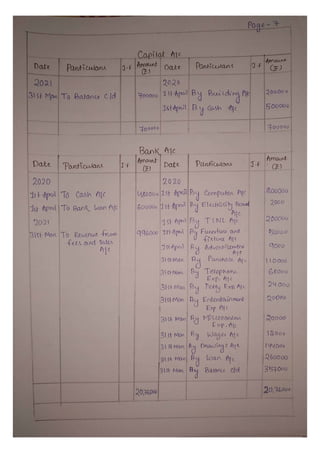 Page - 7
Capital A/c
Date Particulars J.f Amount (₹) Date Particulars J.f Amount (₹)
2021 2020
31st Mar To Balance c/d 700000 1st April By Building A/c 200000
1st April By Cash A/c 500000
700000 700000
Bank A/c
Date Particulars J.f Amount (₹) Date Particulars J.f Amount (₹)
2020 2020
1st April To Cash A/c 1st April By Computer A/c
1st April To Bank Loan A/c 600000 1st April By Electricity Board A/c 2000
2021 1st April By A/c 200000
31st Mar To Revenue from fees and Sales A/c 1st April By Furniture and fixture A/c
1st April By Advertisement A/c 9000
31st Mar By Purchase A/c 110000
31st Mar By Telephone Exp. A/c
31st Mar By Petty Exp A/c 24000
31st Mar By Entertainment Exp A/c
31st Mar By Exp. A/c 20000
31st Mar By Wages A/c
31st Mar By Drawings A/c
31st Mar By Loan A/c 260000
31st Mar By Balance c/d
20,76,000 20,76,000